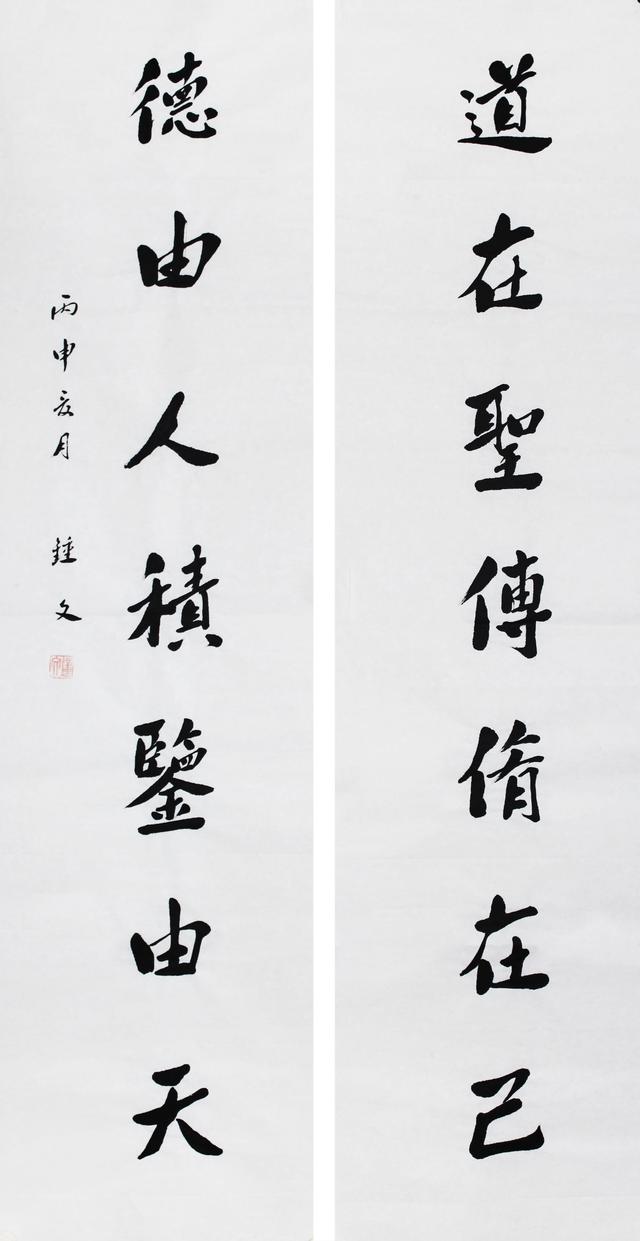 道在聖傳脩在己
德由人積鑒由天
丙申夏月 鍾文